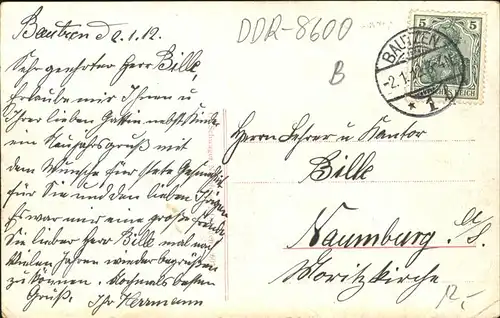 Bautzen d. 2.1.12.
Sehr geehrter Herr Bille,
Erlaube mir Ihnen u
Ihrer lieben Gattin nebst Kinde
ein Neujahrsgruß mit
dem Wunsche für stete Gesundheit
für Sie und den lieben Ihrigen
Es war mir eine große Freude
Sie lieber Herr Bille mal nach
vielen Jahren wieder begrüßen
zu können. Nochmals besten
Gruß. Ihr Herrmann
DDR-8600
B
5 5
BAUTZEN
-2.1.12.
* 1
REICH
Herrn Lehrer u. Kantor
Bille
Naumburg a/S.
Moritzkirche
12,-